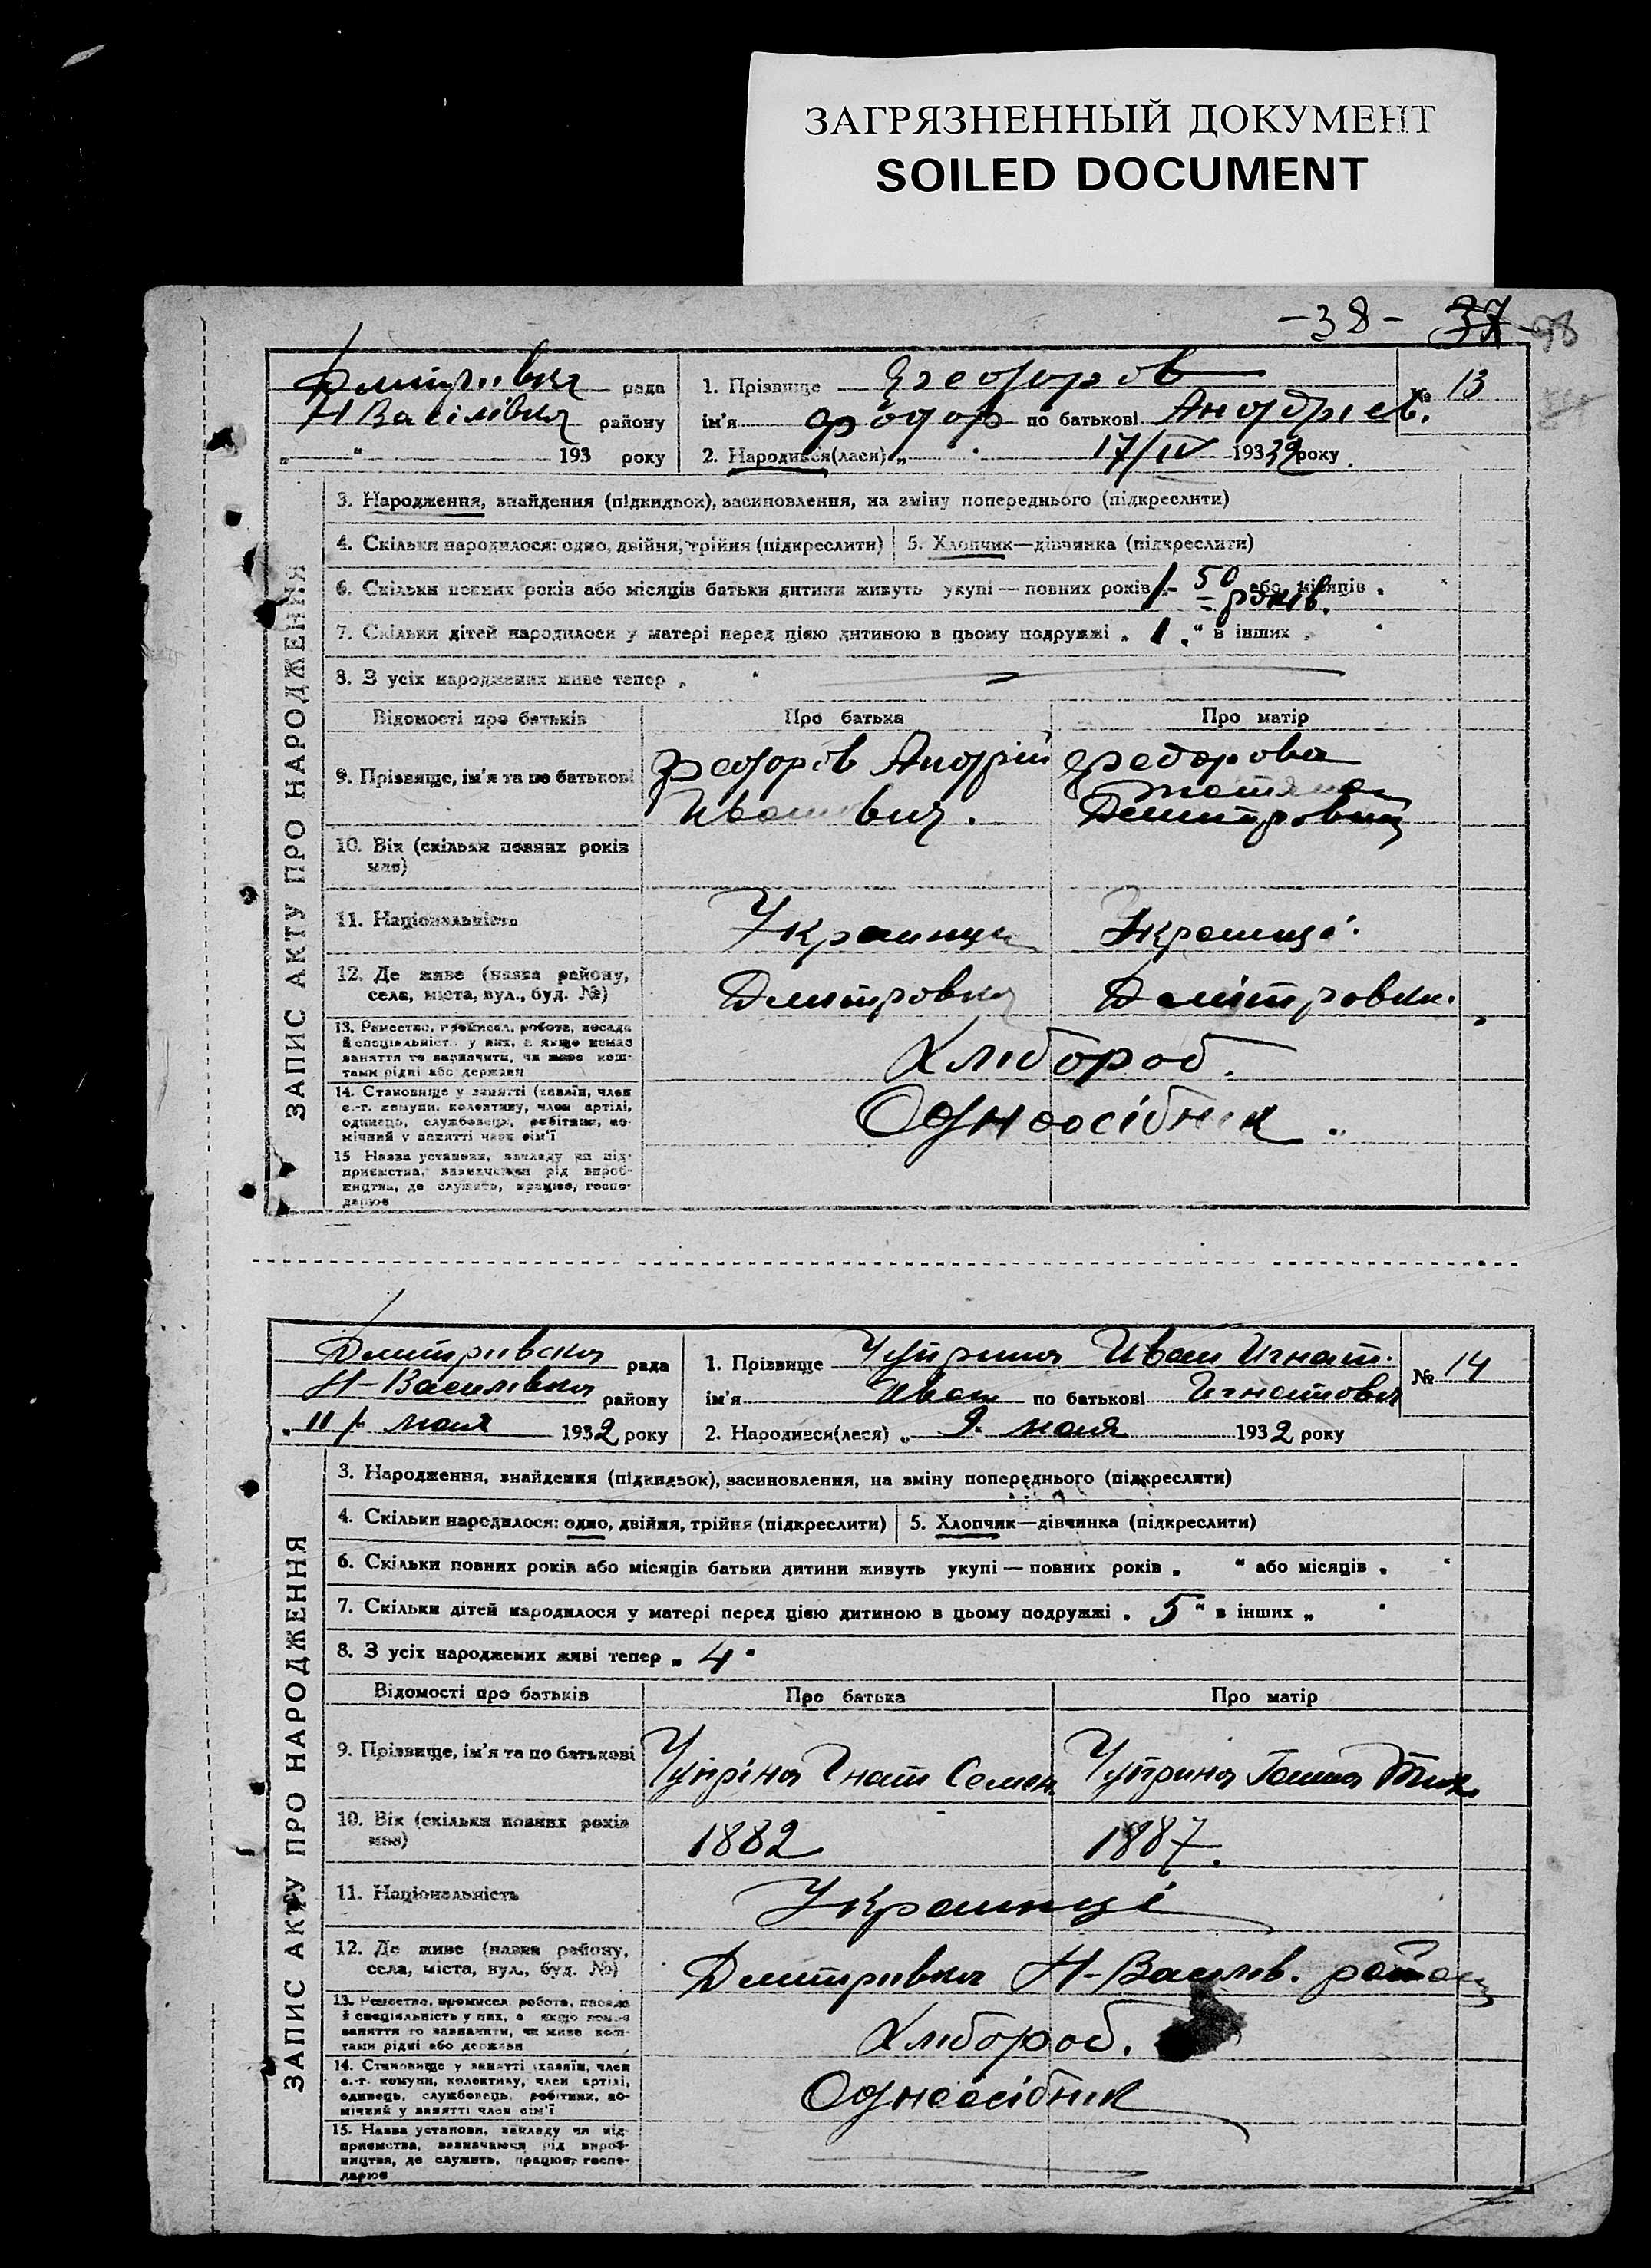 ЗАГРЯЗНЕННЫЙ ДОКУМЕНТ
SOILED DOCUMENT
-38- 37 98
Дмитрівка рада
Н Васілівка району
„ " 193 року
1. Прізвище Федоров
ім'я Фодор по батькові Андріев.
№ 13
2. Народився(лася) „ 17/IV 1932 року
ЗАПИС АКТУ ПРО НАРОДЖЕННЯ
3. Народження, знайдення (підкидьок), засиновлення, на зміну попереднього (підкреслити)
4. Скільки народилося: одно, двійня, трійня (підкреслити) 5. Хлопчик—дівчинка (підкреслити)
6. Скільки повних років або місяців батьки дитини живуть укупі — повних років або місяців
років.
7. Скільки дітей народилося у матері перед цією дитиною в цьому подружжі „ 1 " в інших „
8. З усіх народжених живе тепер „ "
Відомості про батьків Про батька Про матір
9. Прізвище, ім'я та по батькові Федоров Андрій Федорова
Иванович. Дмитровна
10. Вік (скільки повних років
має)
11. Національність Украинци Украинці.
12. Де живе (назва району,
села, міста, вул., буд. №) Дмитровка Дмітровка.
13. Ремество, промисел, робота, посада
й спеціяльність у них, а якщо немає
заняття то зазначити, чи живе кош-
тами рідні або держави
Хлібороб.
14. Становище у занятті (хазяїн, член
с.-г. комуни, колективу, член артілі,
одинець, службовець, робітник, по-
мічний у занятті член сім'ї
Одноосібник.
15 Назва установи, закладу чи під-
приємства, зазначаючи рід вироб-
ництва, де служить, працює, госпо-
дарює
Дмитрівка рада
Н-Василівка району
„ 11 /- мая 1932 року
1. Прізвище Чуприна Иван Игнат.
ім'я Иван по батькові Игнатович
№ 14
2. Народився(лася) „ 9. мая 1932 року
ЗАПИС АКТУ ПРО НАРОДЖЕННЯ
3. Народження, знайдення (підкидьок), засиновлення, на зміну попереднього (підкреслити)
4. Скільки народилося: одно, двійня, трійня (підкреслити) 5. Хлопчик—дівчинка (підкреслити)
6. Скільки повних років або місяців батьки дитини живуть укупі — повних років „ " або місяців „ "
7. Скільки дітей народилося у матері перед цією дитиною в цьому подружжі „ 5 " в інших „ "
8. З усіх народжених живі тепер „ 4 "
Відомості про батьків Про батька Про матір
9. Прізвище, ім'я та по батькові Чупріна Гнат Семен. Чуприна
10. Вік (скільки повних років
має) 1882 1887.
11. Національність Украинці
12. Де живе (назва району,
села, міста, вул., буд. №) Дмитривка Н-Васлів. район
13. Ремество, промисел, робота, посада
й спеціяльність у них, а якщо немає
заняття то зазначити, чи живе кош-
тами рідні або держави
Хлібороб.
14. Становище у занятті (хазяїн, член
с.-г. комуни, колективу, член артілі,
одинець, службовець, робітник, по-
мічний у занятті член сім'ї
Одноосібник
15. Назва установи, закладу чи під-
приємства, зазначаючи рід вироб-
ництва, де служить, працює, госпо-
дарює